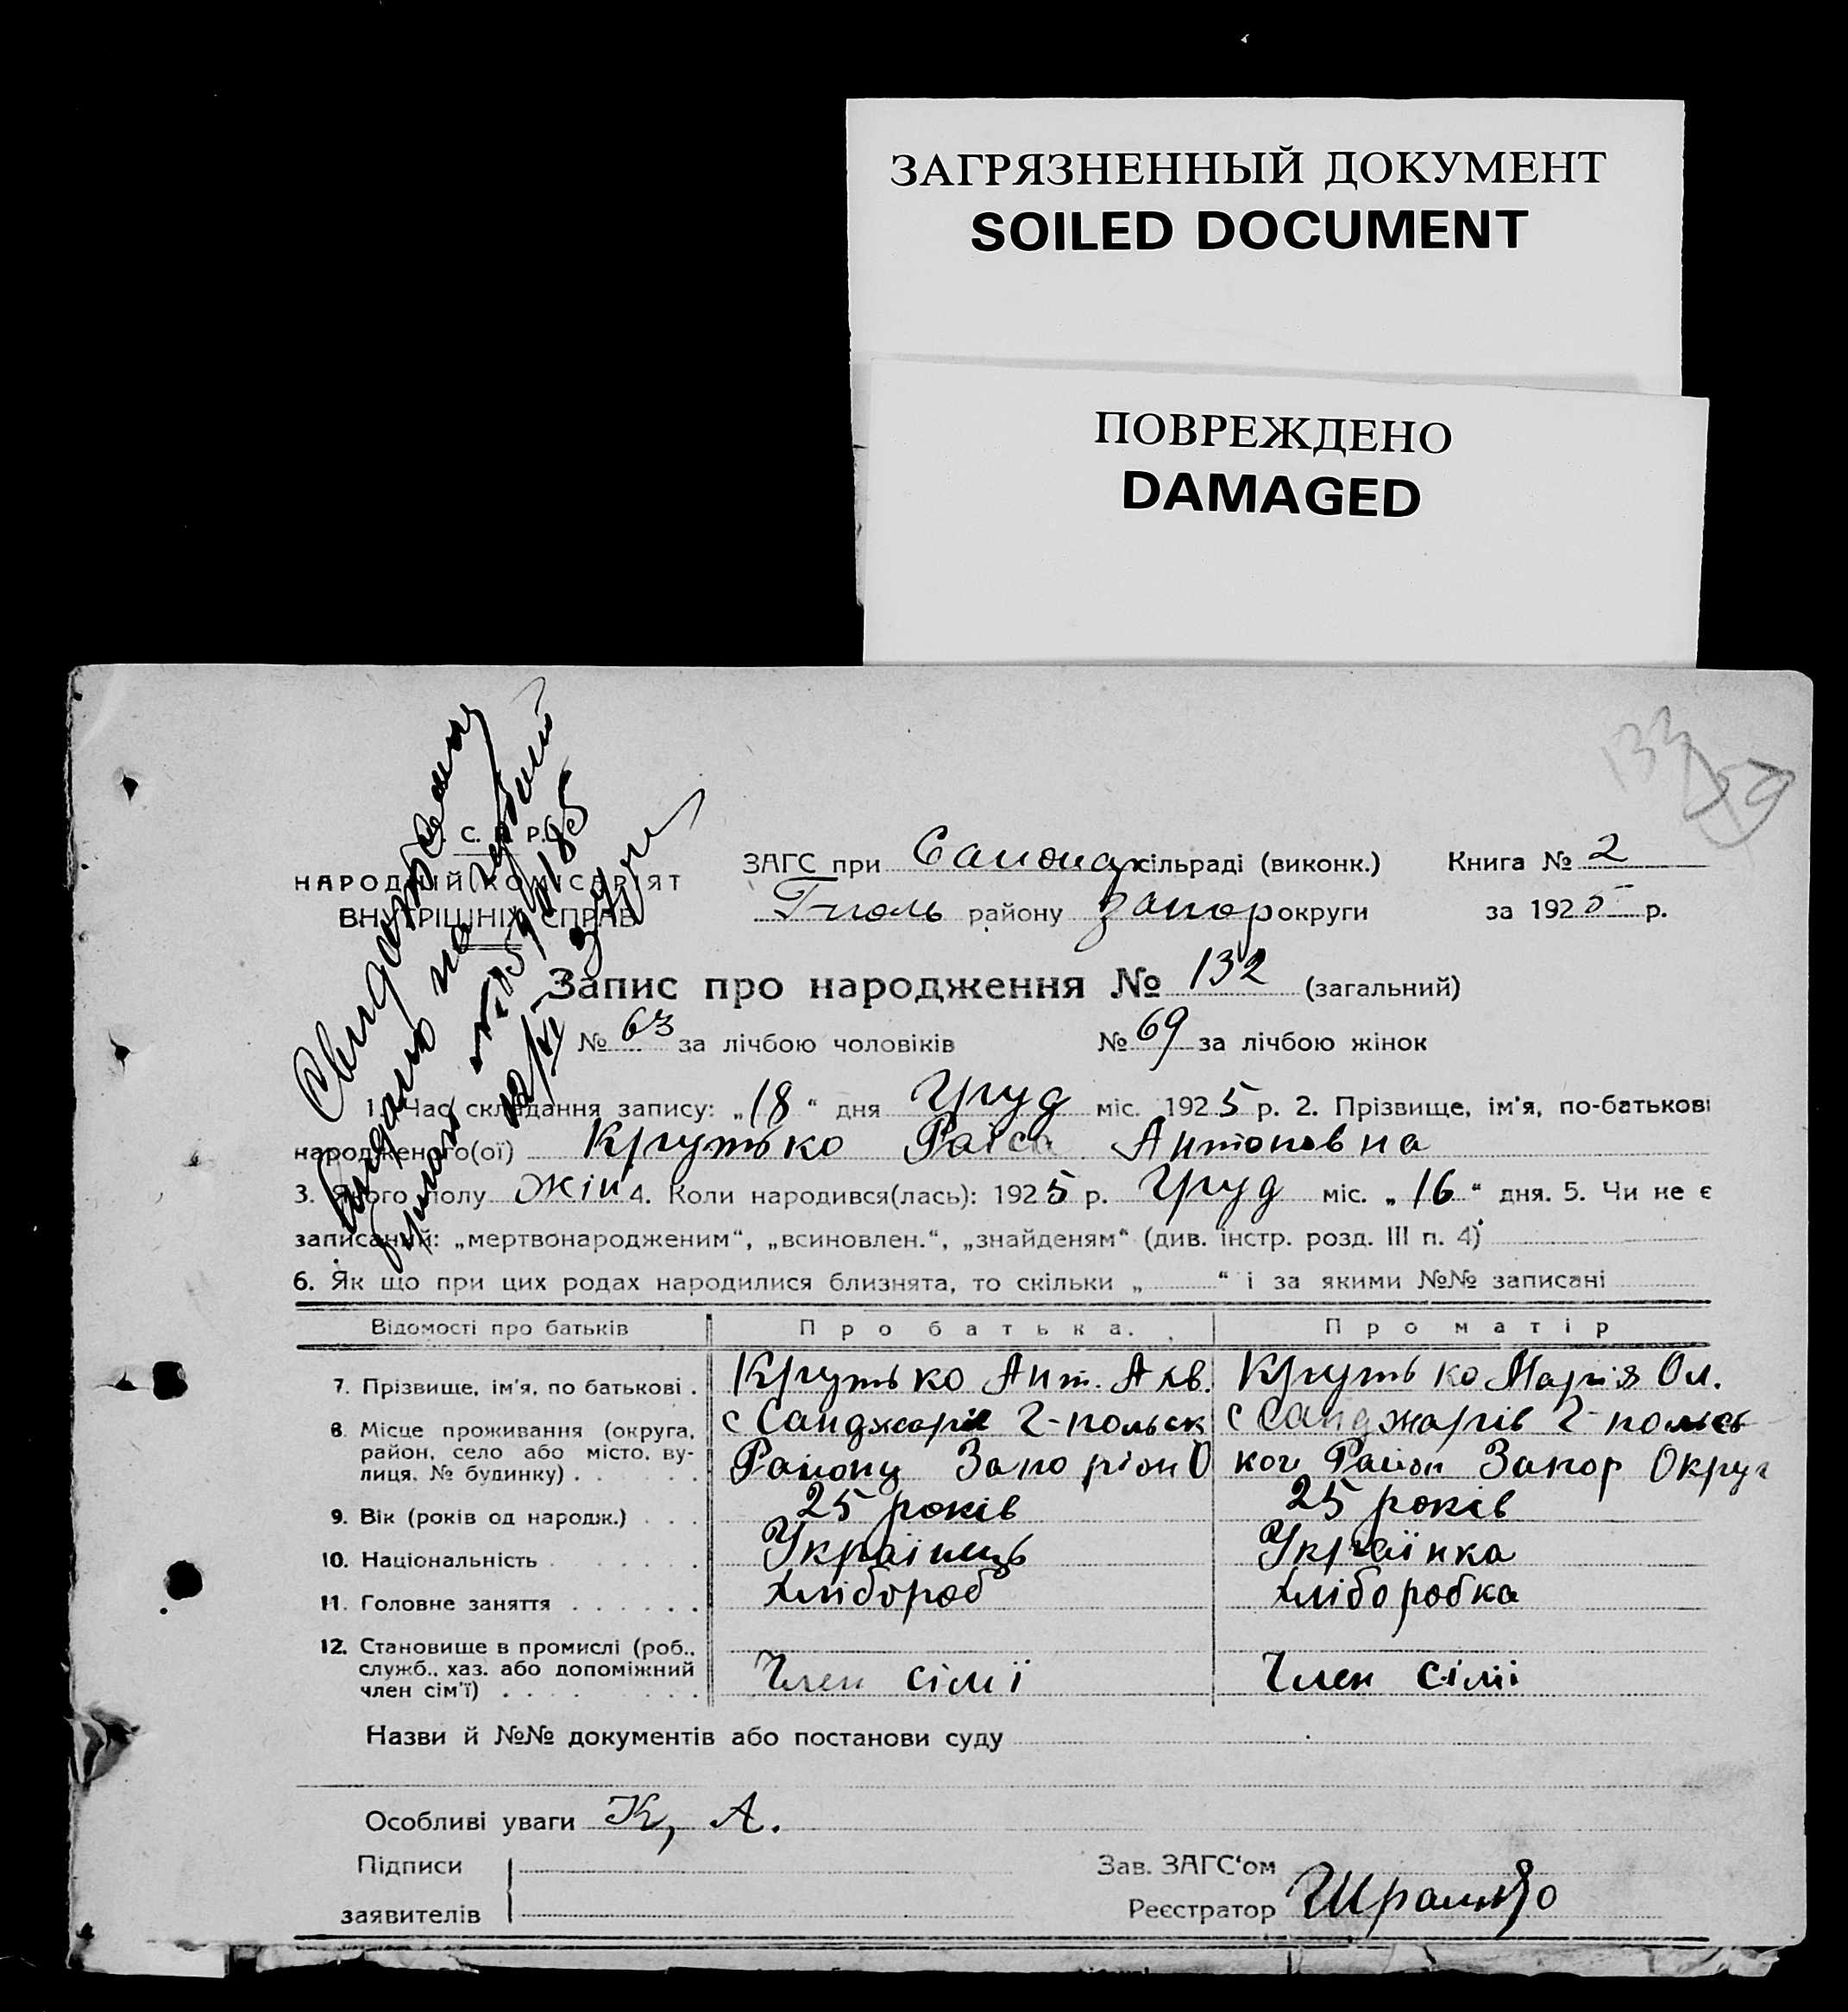 ЗАГРЯЗНЕННЫЙ ДОКУМЕНТ
SOILED DOCUMENT
ПОВРЕЖДЕНО
DAMAGED
С. Р.
НАРОДНІЙ КОМІСАРІЯТ
ВНУТРІШНІХ СПРАВ
ЗАГС при сільраді (виконк.) Книга № 2
Гполь району Запор округи за 1925 р.
Запис про народження № 132 (загальний)
№ 63 за лічбою чоловіків № 69 за лічбою жінок
1. Час складання запису: „18“ дня Груд міс. 1925 р. 2. Прізвище, ім'я, по-батькові
народженого(ої) Крутько Раіса Антоновна
3. Якого полу жін 4. Коли народився(лась): 1925 р. Груд міс. „16“ дня. 5. Чи не є
записаний: „мертвонародженим“, „всиновлен.“, „знайденям“ (див. інстр. розд. III п. 4)
6. Як що при цих родах народилися близнята, то скільки „ “ і за якими №№ записані
Відомості про батьків Про батька. Про матір
7. Прізвище, ім'я, по батькові . Крутько Ант. Акв. Крутько Марія Ол.
8. Місце проживання (округа, с Санджарів Г-польск с Санджарів Г-польсь
район, село або місто, ву-
лиця, № будинку) . . . Району Запоріж О ког Район Запор Округ
9. Вік (років од народж.) . . . 25 років 25 років
10. Національність . . . Українець Українка
11. Головне заняття . . . . . . Хлібороб Хліборобка
12. Становище в промислі (роб.,
служб., хаз. або допоміжний
член сім'ї) . . . Член сімї Член сімі
Назви й №№ документів або постанови суду
Особливі уваги К, А.
Підписи Зав. ЗАГС‘ом
заявителів Реєстратор